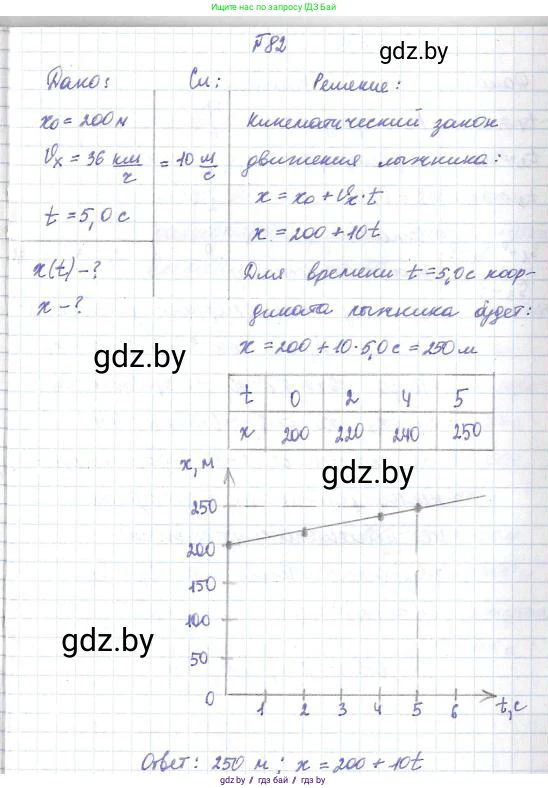 Ищите нас по запросу ГДЗ.БЕЛ
№82
gdz.by
Дано: Си: Решение:
x₀ = 200 м
Кинематический закон
Vx = 36 км/ч = 10 м/с
движения лыжника:
x = x₀ + Vx·t
t = 5,0 с
x = 200 + 10t
x(t) - ?
Для времени t = 5,0 с коор-
x - ?
дината лыжника будет:
x = 200 + 10·5,0 с = 250 м
gdz.by
t 0 2 4 5
x 200 220 240 250
x, м
gdz.by
250
200
150
100
gdz.by
50
0 1 2 3 4 5 6 t, с
Ответ: 250 м; x = 200 + 10t
gdz.by / гдз.бай / гдз.бел